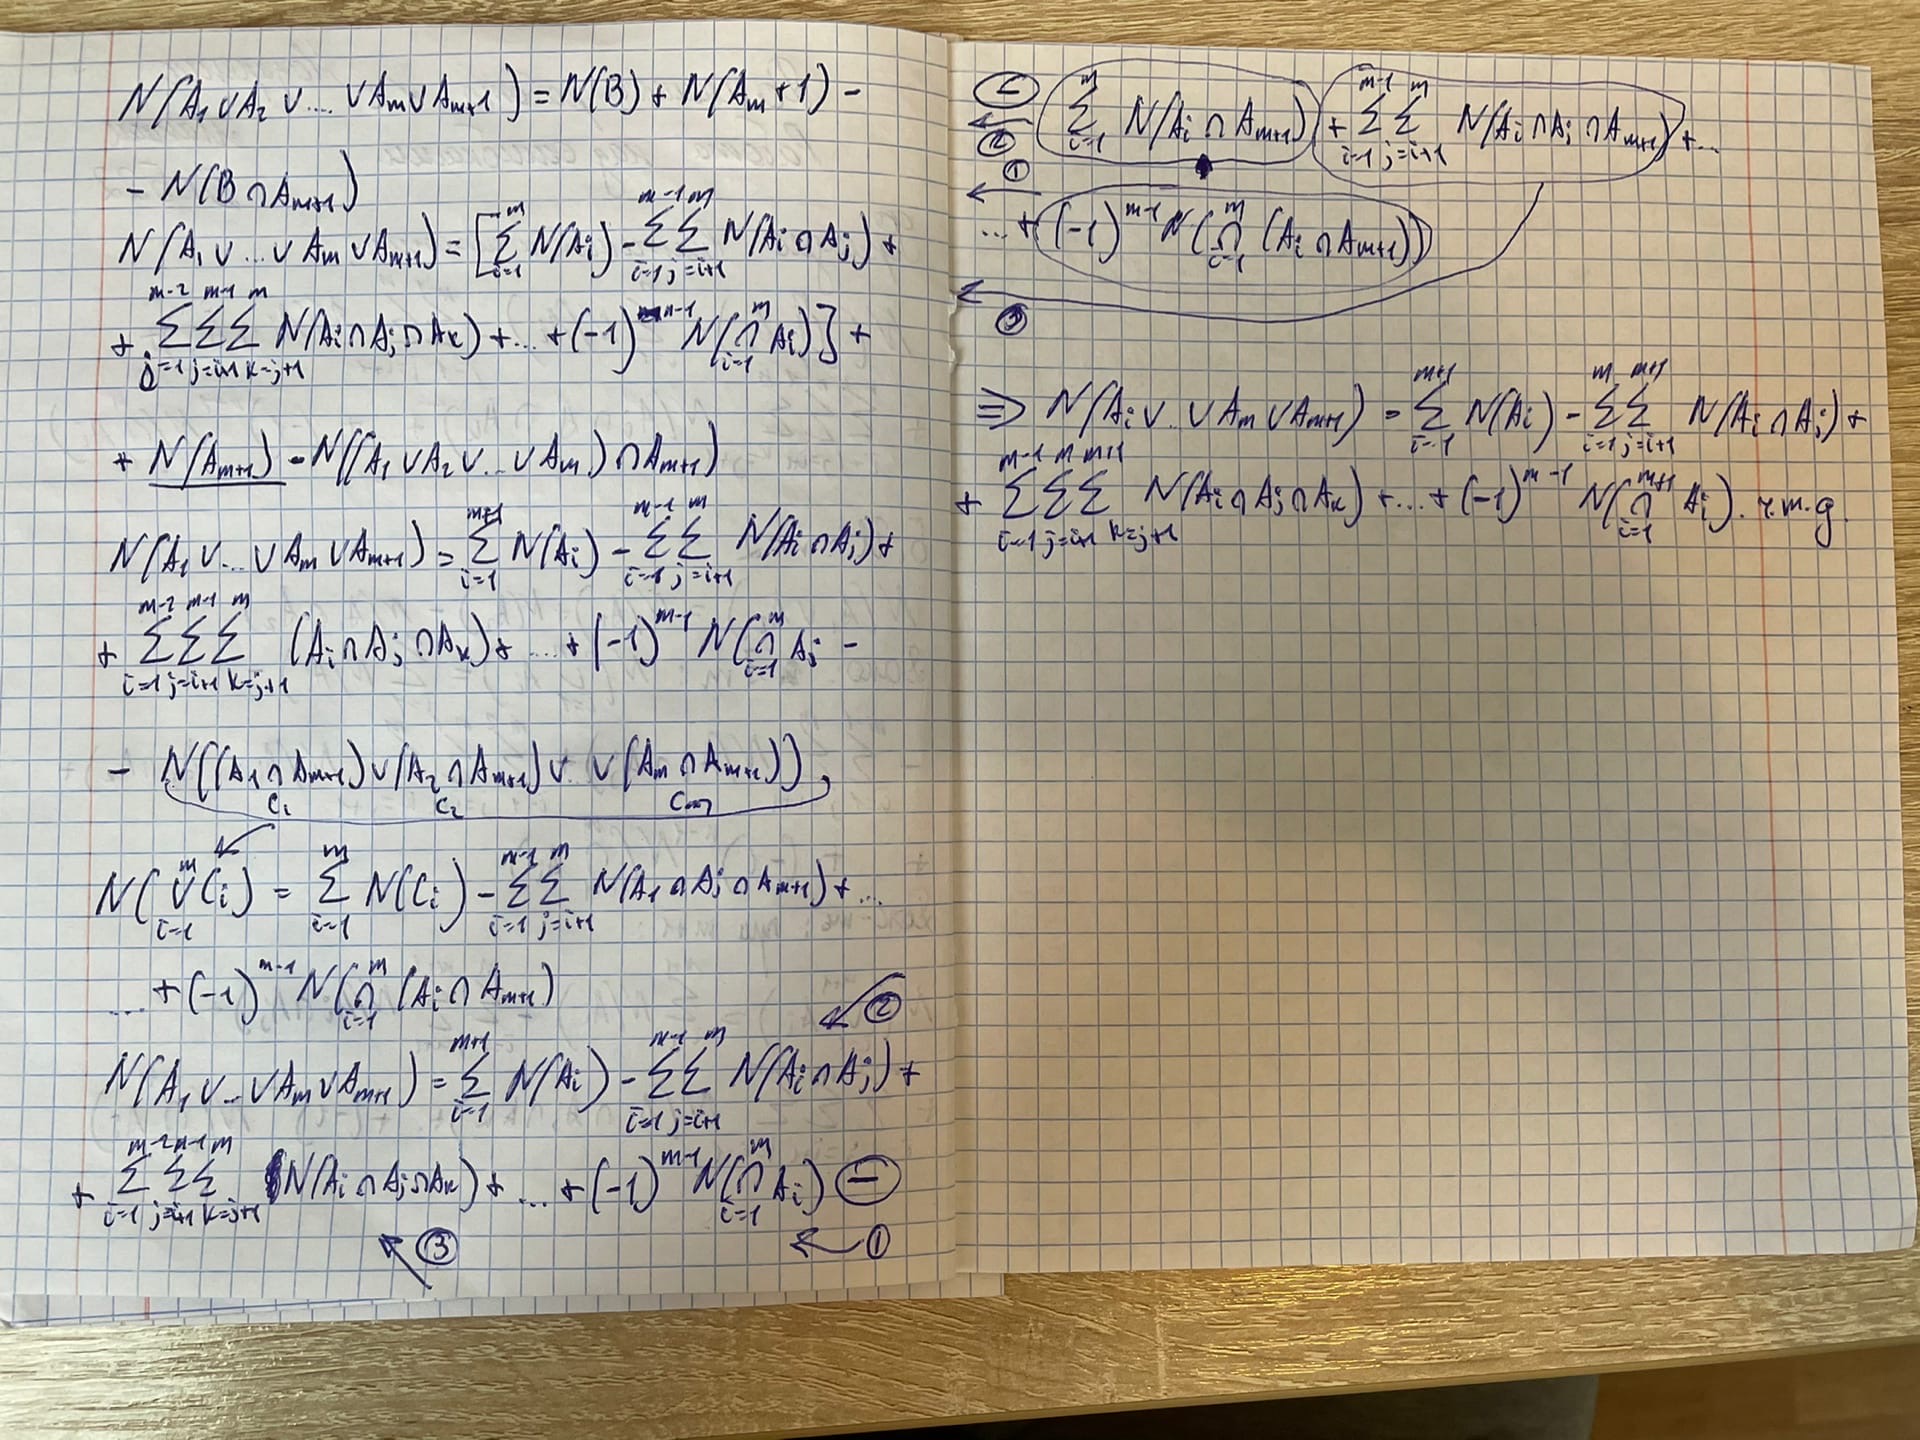 N(A₁ ∪ A₂ ∪ .... ∪ Aₘ ∪ Aₘ₊₁) = N(B) + N(Aₘ + 1) -
- N(B ∩ Aₘ₊₁)
N(A₁ ∪ ... ∪ Aₘ ∪ Aₘ₊₁) = [∑_{i=1}^{m} N(Aᵢ) - ∑_{i=1}^{m-1} ∑_{j=i+1}^{m} N(Aᵢ ∩ Aⱼ) +
+ ∑_{i=1}^{m-2} ∑_{j=i+1}^{m-1} ∑_{k=j+1}^{m} N(Aᵢ ∩ Aⱼ ∩ Aₖ) + ... + (-1)^{n-1} N(∩_{i=1}^{m} Aᵢ)] +
+ N(Aₘ₊₁) - N((A₁ ∪ A₂ ∪ ... ∪ Aₘ) ∩ Aₘ₊₁)
N(A₁ ∪ ... ∪ Aₘ ∪ Aₘ₊₁) = ∑_{i=1}^{m+1} N(Aᵢ) - ∑_{i=1}^{m-1} ∑_{j=i+1}^{m} N(Aᵢ ∩ Aⱼ) +
+ ∑_{i=1}^{m-2} ∑_{j=i+1}^{m-1} ∑_{k=j+1}^{m} (Aᵢ ∩ Aⱼ ∩ Aₖ) + ... + (-1)^{m-1} N(∩_{i=1}^{m} Aᵢ -
- N((A₁ ∩ Aₘ₊₁) ∪ (A₂ ∩ Aₘ₊₁) ∪ .. ∪ (Aₘ ∩ Aₘ₊₁))
C₁ C₂ Cₘ
N(∪_{i=1}^{m} Cᵢ) = ∑_{i=1}^{m} N(Cᵢ) - ∑_{i=1}^{m-1} ∑_{j=i+1}^{m} N(A₁ ∩ Aⱼ ∩ Aₘ₊₁) + ...
... + (-1)^{m-1} N(∩_{i=1}^{m} (Aᵢ ∩ Aₘ₊₁)
← ②
N(A₁ ∪ ... ∪ Aₘ ∪ Aₘ₊₁) = ∑_{i=1}^{m+1} N(Aᵢ) - ∑_{i=1}^{m-1} ∑_{j=i+1}^{m} N(Aᵢ ∩ Aⱼ) +
+ ∑_{i=1}^{m-2} ∑_{j=i+1}^{m-1} ∑_{k=j+1}^{m} N(Aᵢ ∩ Aⱼ ∩ Aₖ) + ... + (-1)^{m-1} N(∩_{i=1}^{m} Aᵢ) ⊖
← ③ ← ①
⊖ ∑_{i=1}^{m} N(Aᵢ ∩ Aₘ₊₁) + ∑_{i=1}^{m-1} ∑_{j=i+1}^{m} N(Aᵢ ∩ Aⱼ ∩ Aₘ₊₁) + ...
← ②
← ①
... + (-1)^{m-1} N(∩_{i=1}^{m} (Aᵢ ∩ Aₘ₊₁))
← ③
⇒ N(Aᵢ ∪ .. ∪ Aₘ ∪ Aₘ₊₁) = ∑_{i=1}^{m+1} N(Aᵢ) - ∑_{i=1}^{m} ∑_{j=i+1}^{m+1} N(Aᵢ ∩ Aⱼ) +
+ ∑_{i=1}^{m-1} ∑_{j=i+1}^{m} ∑_{k=j+1}^{m+1} N(Aᵢ ∩ Aⱼ ∩ Aₖ) + ... + (-1)^{m-1} N(∩_{i=1}^{m+1} Aᵢ). ч.т.д.